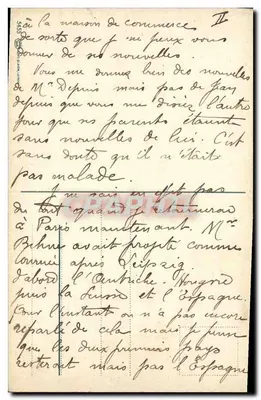 II
à la maison de commerce
de sorte que je ne peux vous
donner de ses nouvelles.
Vous me donnez bien des nouvelles
de Mr Depuis mais pas de Jean
depuis que vous me disiez l'autre
jour que ses parents étaient
sans nouvelles de lui. C'est
sans doute qu'il n'était
pas malade.
Je ne sais en effet pas
du tout quand je retournerai
à Paris maintenant. Mr
Behne avait projeté comme
tournée après Leipzig
d'abord l'Autriche Hongrie
puis la Suisse et l'Espagne
Pour l'instant on n'a pas encore
reparlé de cela mais je pense
que les deux premiers pays
resteront mais pas l'Espagne